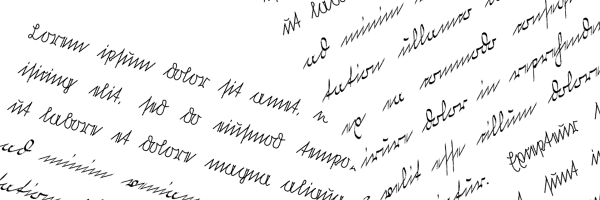 Lorem ipsum dolor sit amet,
ipiscing elit, sed do eiusmod tempo
ut labore et dolore magna aliqua
ad minim veniam
tation
ut labo
ad minim
tation ullamco
ex ea commodo conseq
irure dolor in reprehende
velit esse cillum dolore
atur. Excepteur
sunt in